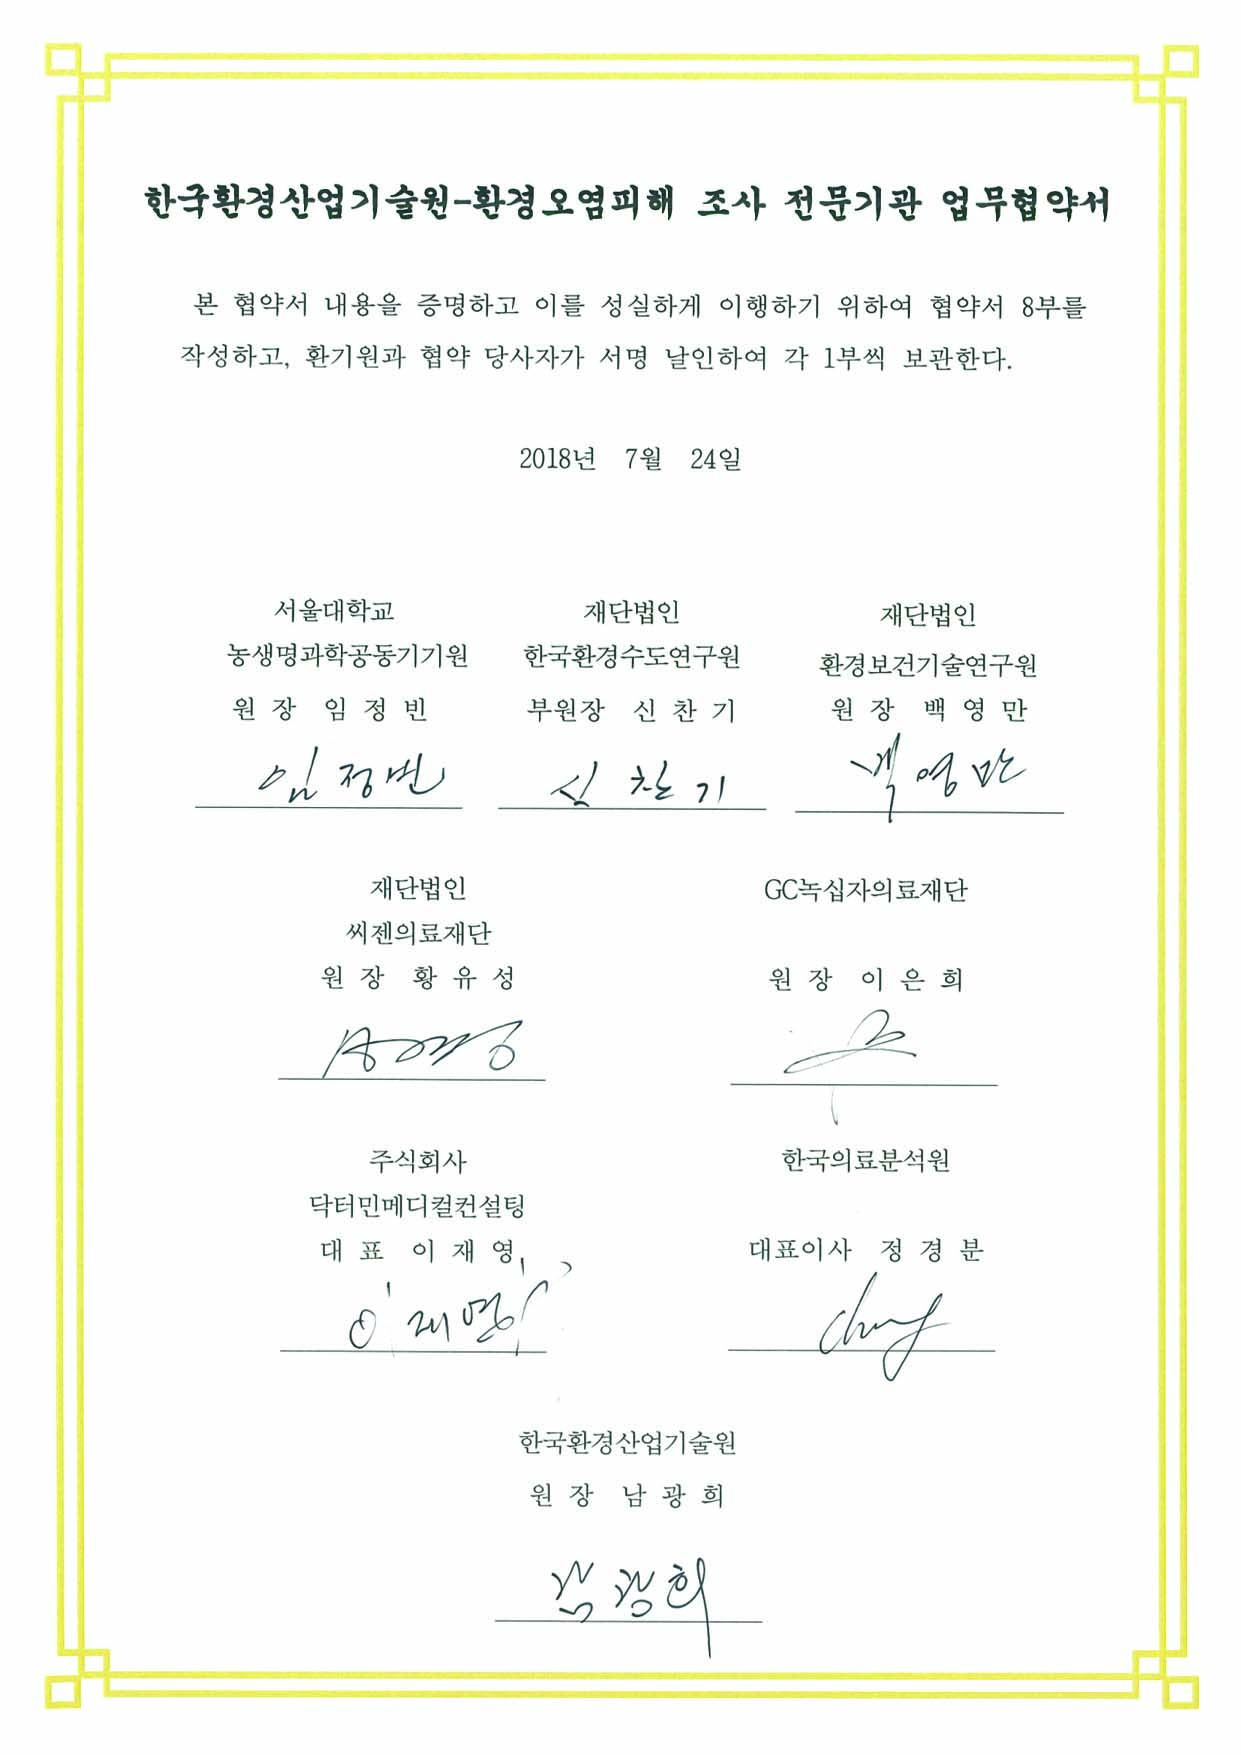 한국환경산업기술원-환경오염피해 조사 전문기관 업무협약서
본 협약서 내용을 증명하고 이를 성실하게 이행하기 위하여 협약서 8부를
작성하고, 환기원과 협약 당사자가 서명 날인하여 각 1부씩 보관한다.
2018년 7월 24일
서울대학교
농생명과학공동기기원
원 장 임 정 빈
임정빈
재단법인
한국환경수도연구원
부원장 신 찬 기
신찬기
재단법인
환경보건기술연구원
원 장 백 영 만
백영만
재단법인
씨젠의료재단
원 장 황 유 성
GC녹십자의료재단
원 장 이 은 희
주식회사
닥터민메디컬컨설팅
대 표 이 재 영
이재영
한국의료분석원
대표이사 정 경 분
Chung
한국환경산업기술원
원 장 남 광 희
남광희